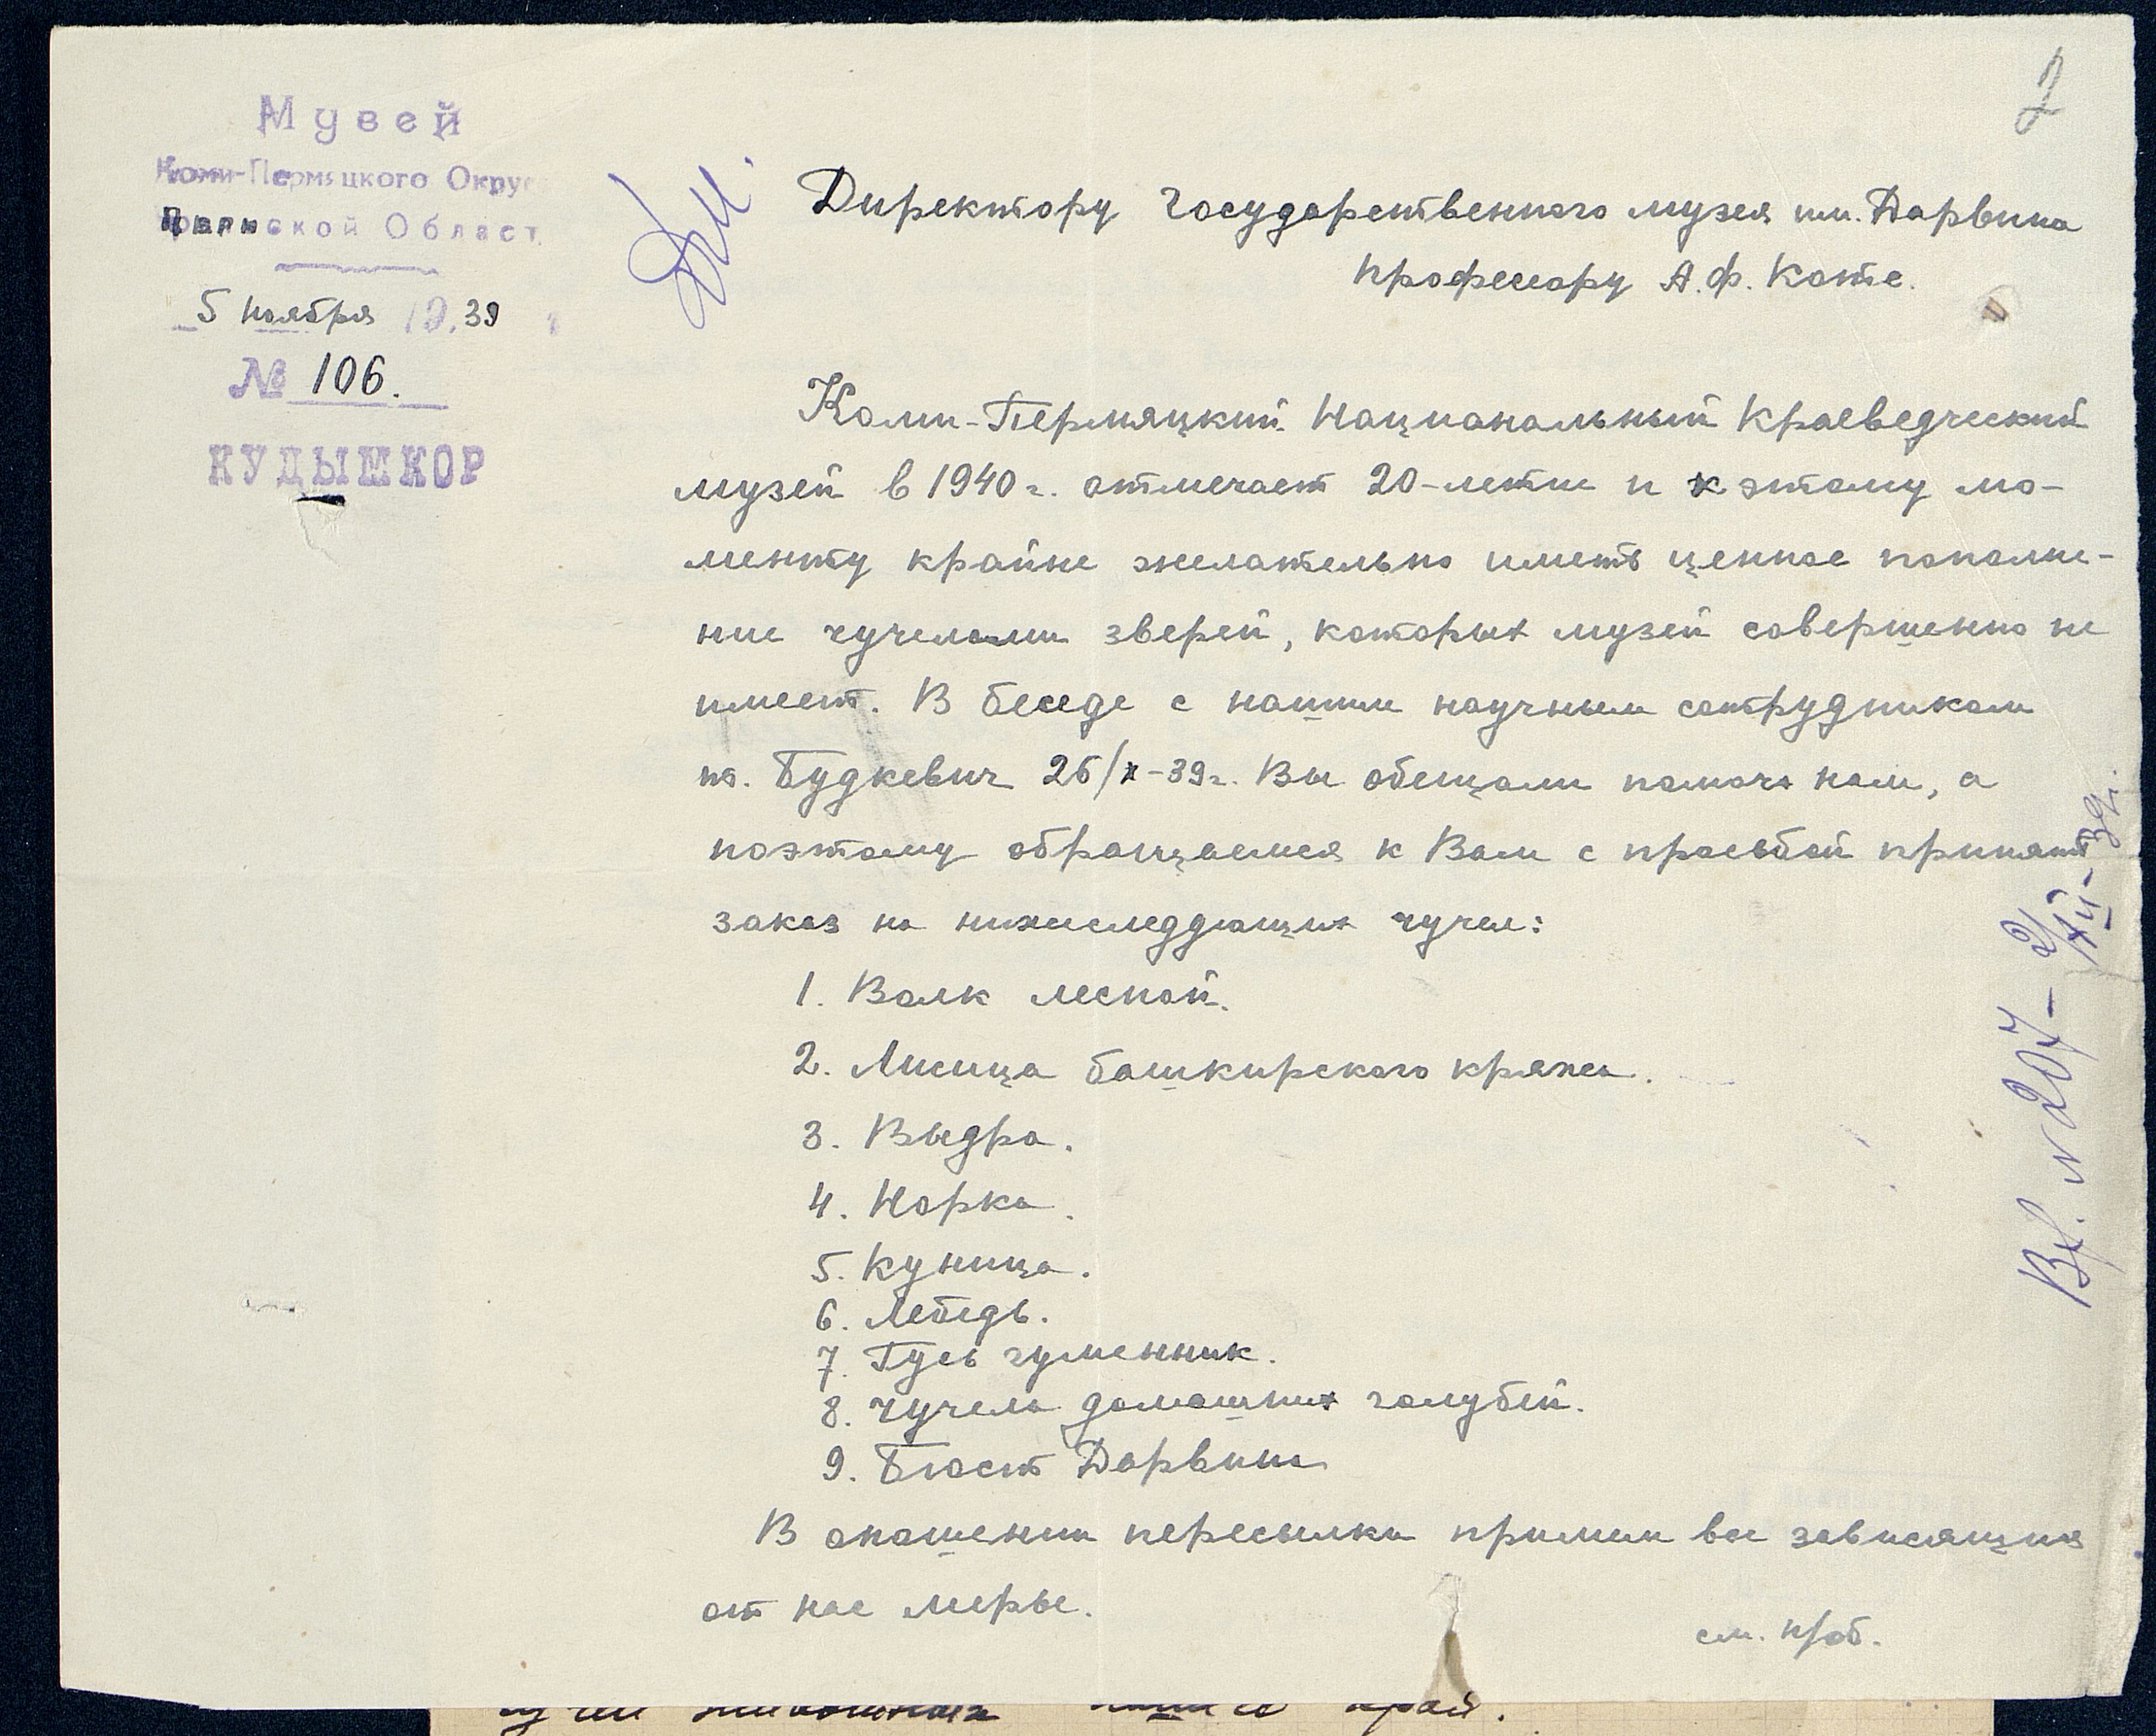 2
Музей
Коми-Пермяцкого Округа
Пермской Област
5 ноября 19.39
№ 106.
КУДЫМКОР
Директору Государственного музея им. Дарвина
профессору А.Ф. Котс.
Коми-Пермяцкий Национальный Краеведческий
музей в 1940 г. отмечает 20-летие и к этому мо-
менту крайне желательно иметь ценное пополне-
ние чучелами зверей, которых музей совершенно не
имеет. В беседе с нашим научным сотрудником
т. Будкевич 26/X-39г. Вы обещали помочь нам, а
поэтому обращаемся к Вам с просьбой принять
заказ на нижеследдющих чучел:
1. Волк лесной.
2. Лисица башкирского кряжа.
3. Выдра.
4. Норка.
5. Куница.
6. Лебедь.
7. Гусь гуменник.
8. Чучела домашних голубей.
9. Бюст Дарвина
В оношении пересылки примим все зависящия
от нас меры.
см. н/об.
Вх. № 207 – 2/XII-39г.
край.